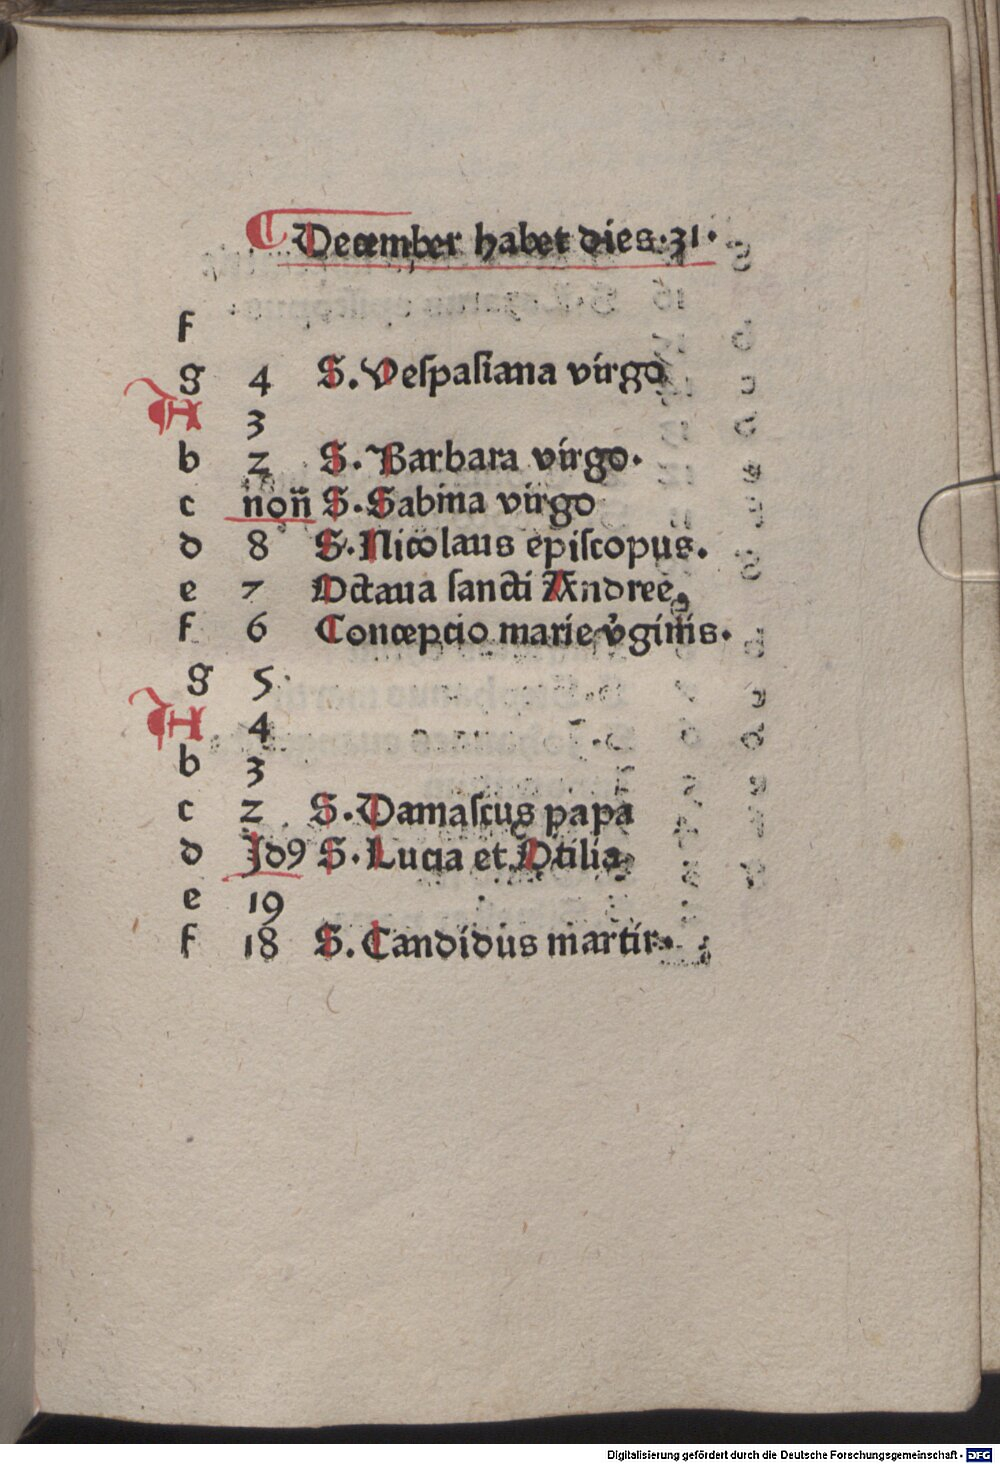 December habet dies·31·
f
g 4 S. Vespasiana virgo
A 3
b 2 S. Barbara virgo·
c non̄ S. Sabina virgo
d 8 S. Nicolaus episcopus.
e 7 Octaua sancti Andree.
f 6 Concepcio marie v̓ginis.
g 5
A 4
b 3
c 2 S. Damascus papa
d Jdꝰ S. Lucia et Otilia
e 19
f 18 S. Candidus martir.
Digitalisierung gefördert durch die Deutsche Forschungsgemeinschaft - DFG